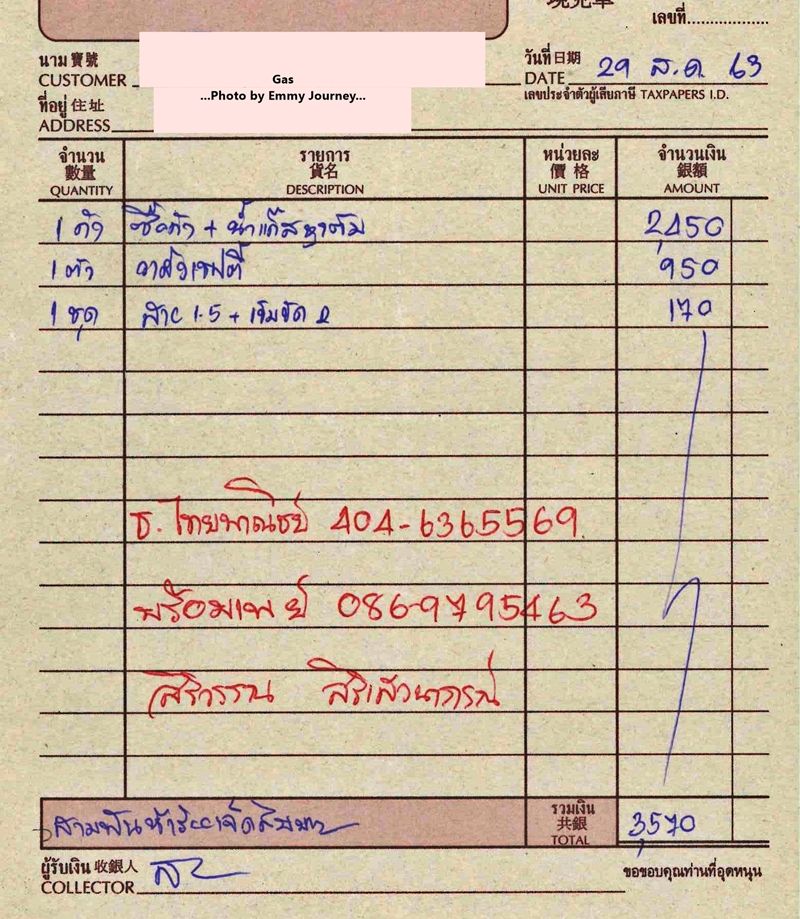 เลขที่
นาม 寶號
CUSTOMER
Gas
วันที่ 日期
DATE 29 ส.ค. 63
ที่อยู่ 住址
ADDRESS
...Photo by Emmy Journey...
เลขประจำตัวผู้เสียภาษี TAXPAPERS I.D.
จำนวน รายการ หน่วยละ จำนวนเงิน
數量 貨名 價格 銀額
QUANTITY DESCRIPTION UNIT PRICE AMOUNT
1 ตัว ซื้อถัง + น้ำแก๊ส 2,450
1 ตัว เซฟตี้ 950
1 ชุด สาย 1.5 + เข็มขัด 2 170
ธ. ไทยพาณิชย์ 404-6365569
พร้อมเพย์ 086-9795463
สิริวรรณ สิริเสาวนาภรณ์
สามพันห้าร้อยเจ็ดสิบบาท รวมเงิน 3,570
共銀
TOTAL
ผู้รับเงิน 收銀人
COLLECTOR
ขอขอบคุณท่านที่อุดหนุน